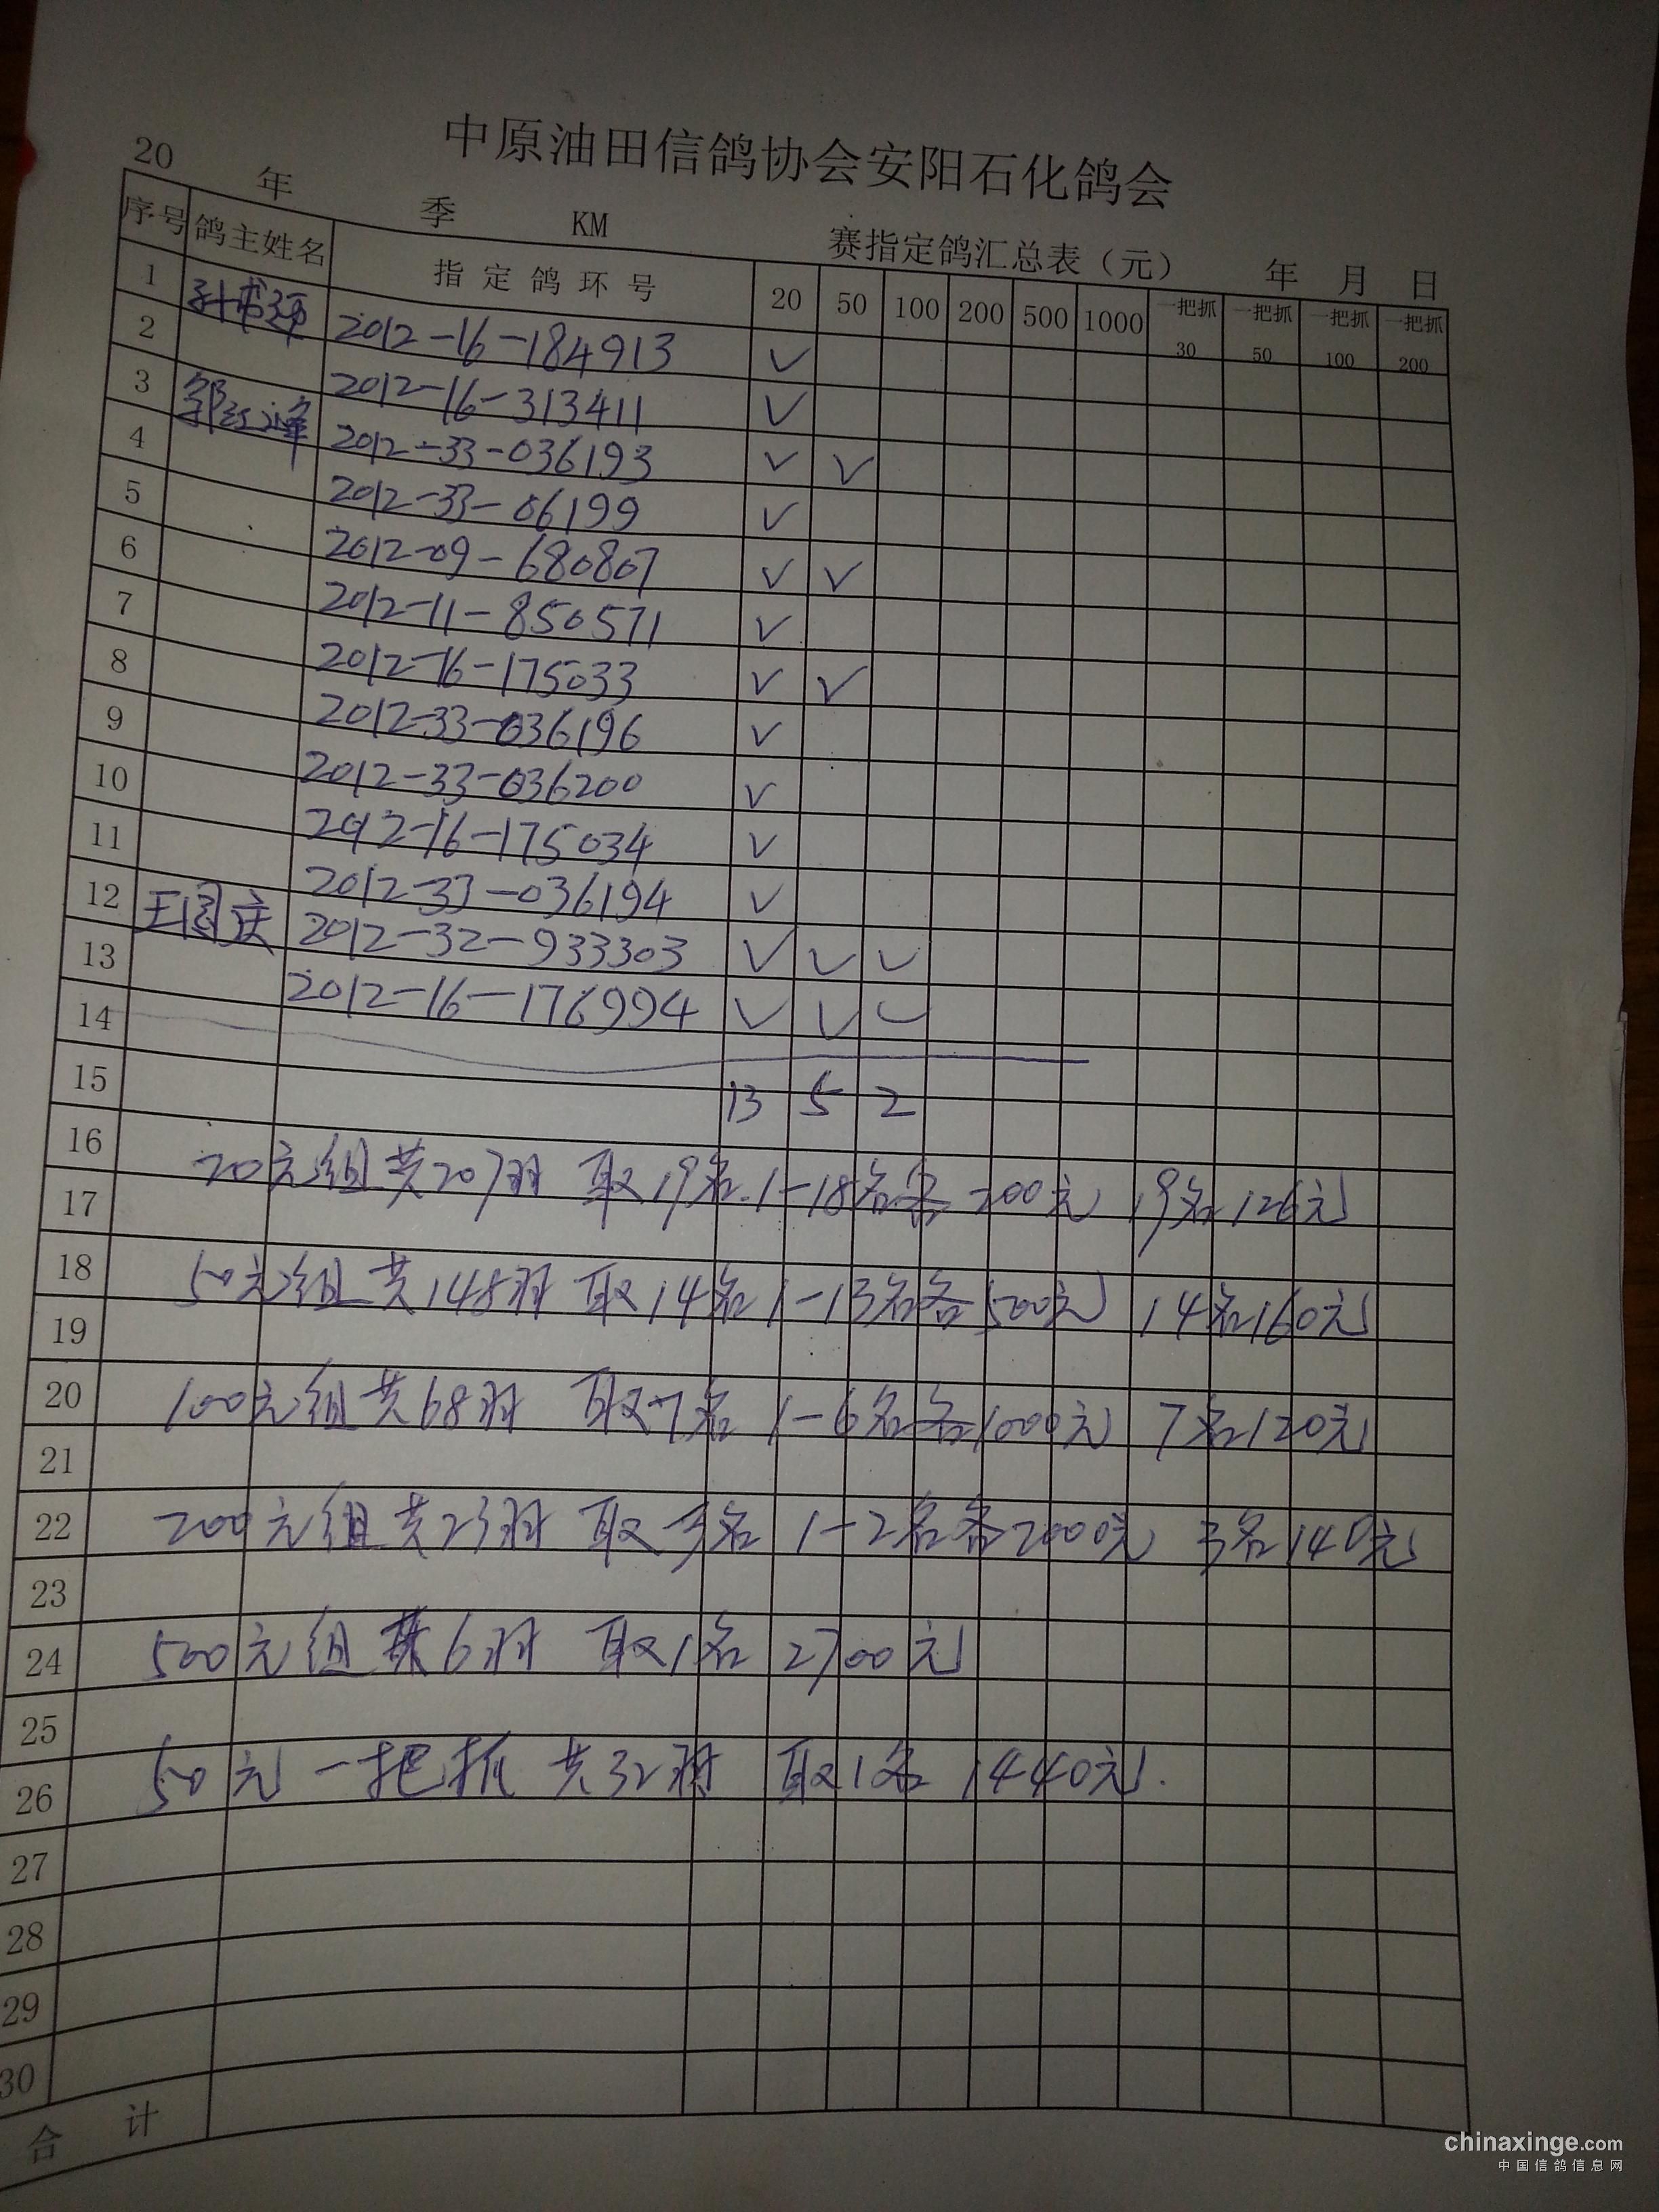 中原油田信鸽协会安阳石化鸽会
20 年 季 KM 赛指定鸽汇总表（元） 年 月 日
序号 鸽主姓名 指定鸽环号 20 50 100 200 500 1000 一把抓30 一把抓50 一把抓100 一把抓200
1 2012-16-184913 ✓
2 2012-16-313411 ✓
3 2012-33-036193 ✓ ✓
4 2012-33-06199 ✓
5 2012-09-680807 ✓ ✓
6 2012-11-850571 ✓
7 2012-16-175033 ✓ ✓
8 2012-33-036196 ✓
9 2012-33-036200 ✓
10 2012-16-175034 ✓
11 2012-33-036194 ✓
12 王国庆 2012-32-933303 ✓ ✓ ✓
13 2012-16-176994 ✓ ✓ ✓
14
15 13 5 2
16 20元组共207羽 取19名 1-18名各200元 19名126元
17
18 50元组共148羽 取14名 1-13名各500元 14名160元
19
20 100元组共68羽 取7名 1-6名各1000元 7名120元
21
22 200元组共23羽 取3名 1-2名各2000元 3名140元
23
24 500元组共6羽 取1名 2700元
25
26 50元一把抓共32羽 取1名 1440元.
27
28
29
30
合计
chinaxinge.com
中国信鸽信息网